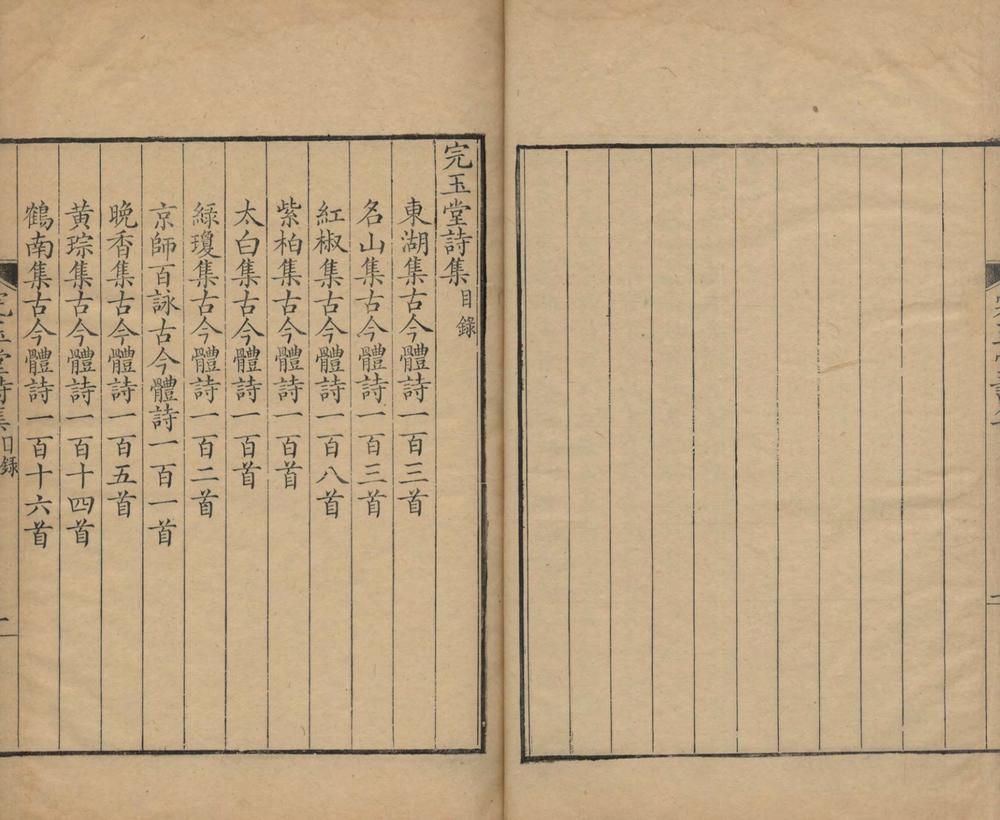 完玉堂詩集目錄
東湖集古今體詩一百三首
名山集古今體詩一百三首
紅椒集古今體詩一百八首
紫柏集古今體詩一百首
太白集古今體詩一百首
綠瓊集古今體詩一百二首
京師百詠古今體詩一百一首
晚香集古今體詩一百五首
黃琮集古今體詩一百十四首
鶴南集古今體詩一百十六首
完玉堂詩集目錄